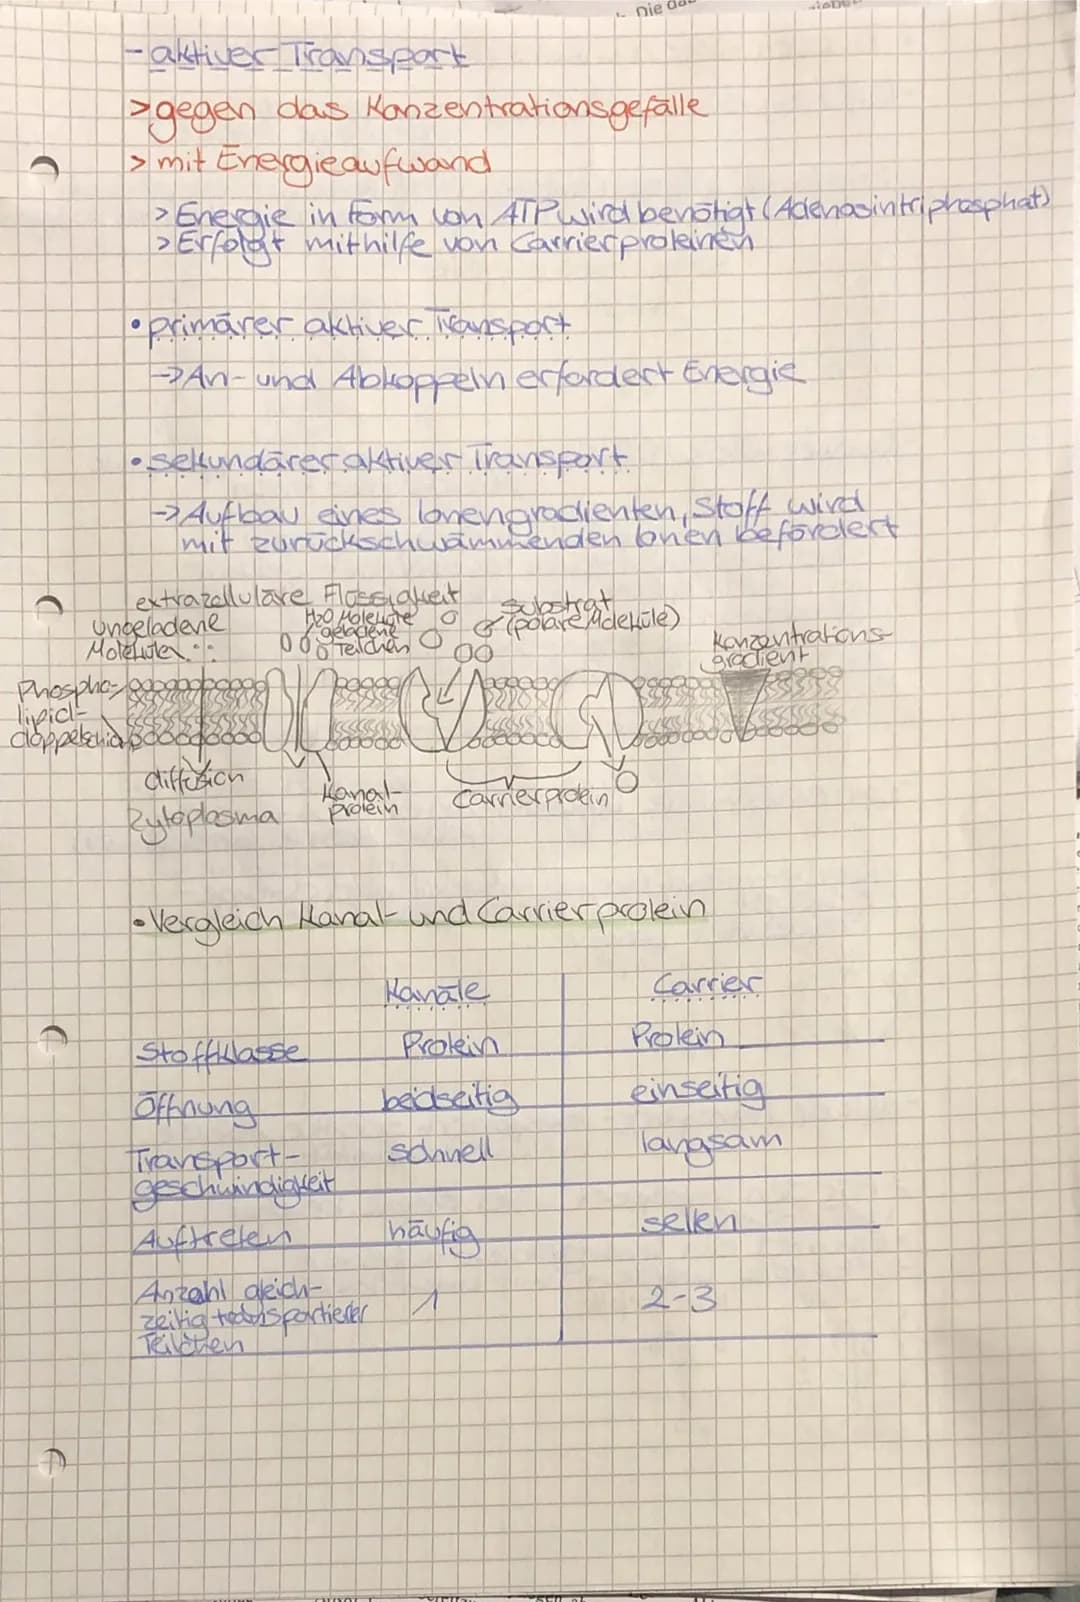 Die
- aktiver Transport
> gegen das Konzentrationsgefälle
> mit Energieaufwand
> Energie in Form von ATP wird benötigt (Adenosintriphosphat)
> Erfolgt mithilfe von Carrierproteinen
• primärer aktiver Transport
→ An- und Abkoppeln erfordert Energie
• sekundärer aktiver Transport
→ Aufbau eines Ionengradienten, Stoff wird
mit zurückschwämmenden Ionen befördert
extrazelluläre Flüssigkeit
ungeladene
Moleküle
H2O Moleküle
geladene
Teilchen
Substrat
(polare Moleküle)
Konzentrations-
gradient
Phospho-
lipid-
doppelschicht
diffusion
Zytoplasma
Kanal-
protein
Carrierprotein
• Vergleich Kanal- und Carrierprotein
Kanäle Carrier
Stoffklasse Protein Protein
Öffnung beidseitig einseitig
Transport- schnell langsam
geschwindigkeit
Auftreten häufig selten
Anzahl gleich-
zeitig transportierter 1 2-3
Teilchen